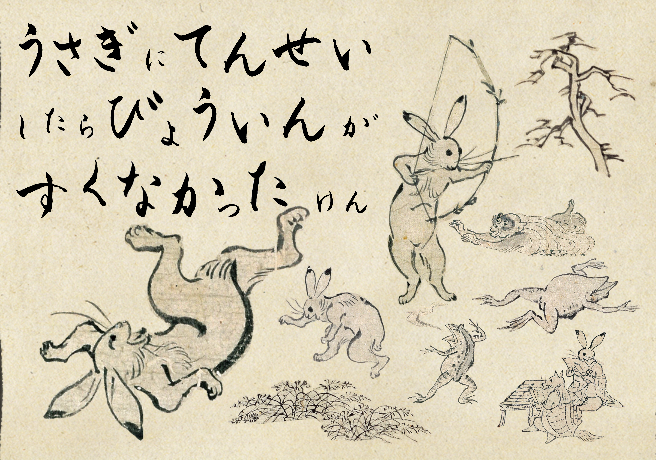 うさぎにてんせい
したらびょういんが
すくなかったけん